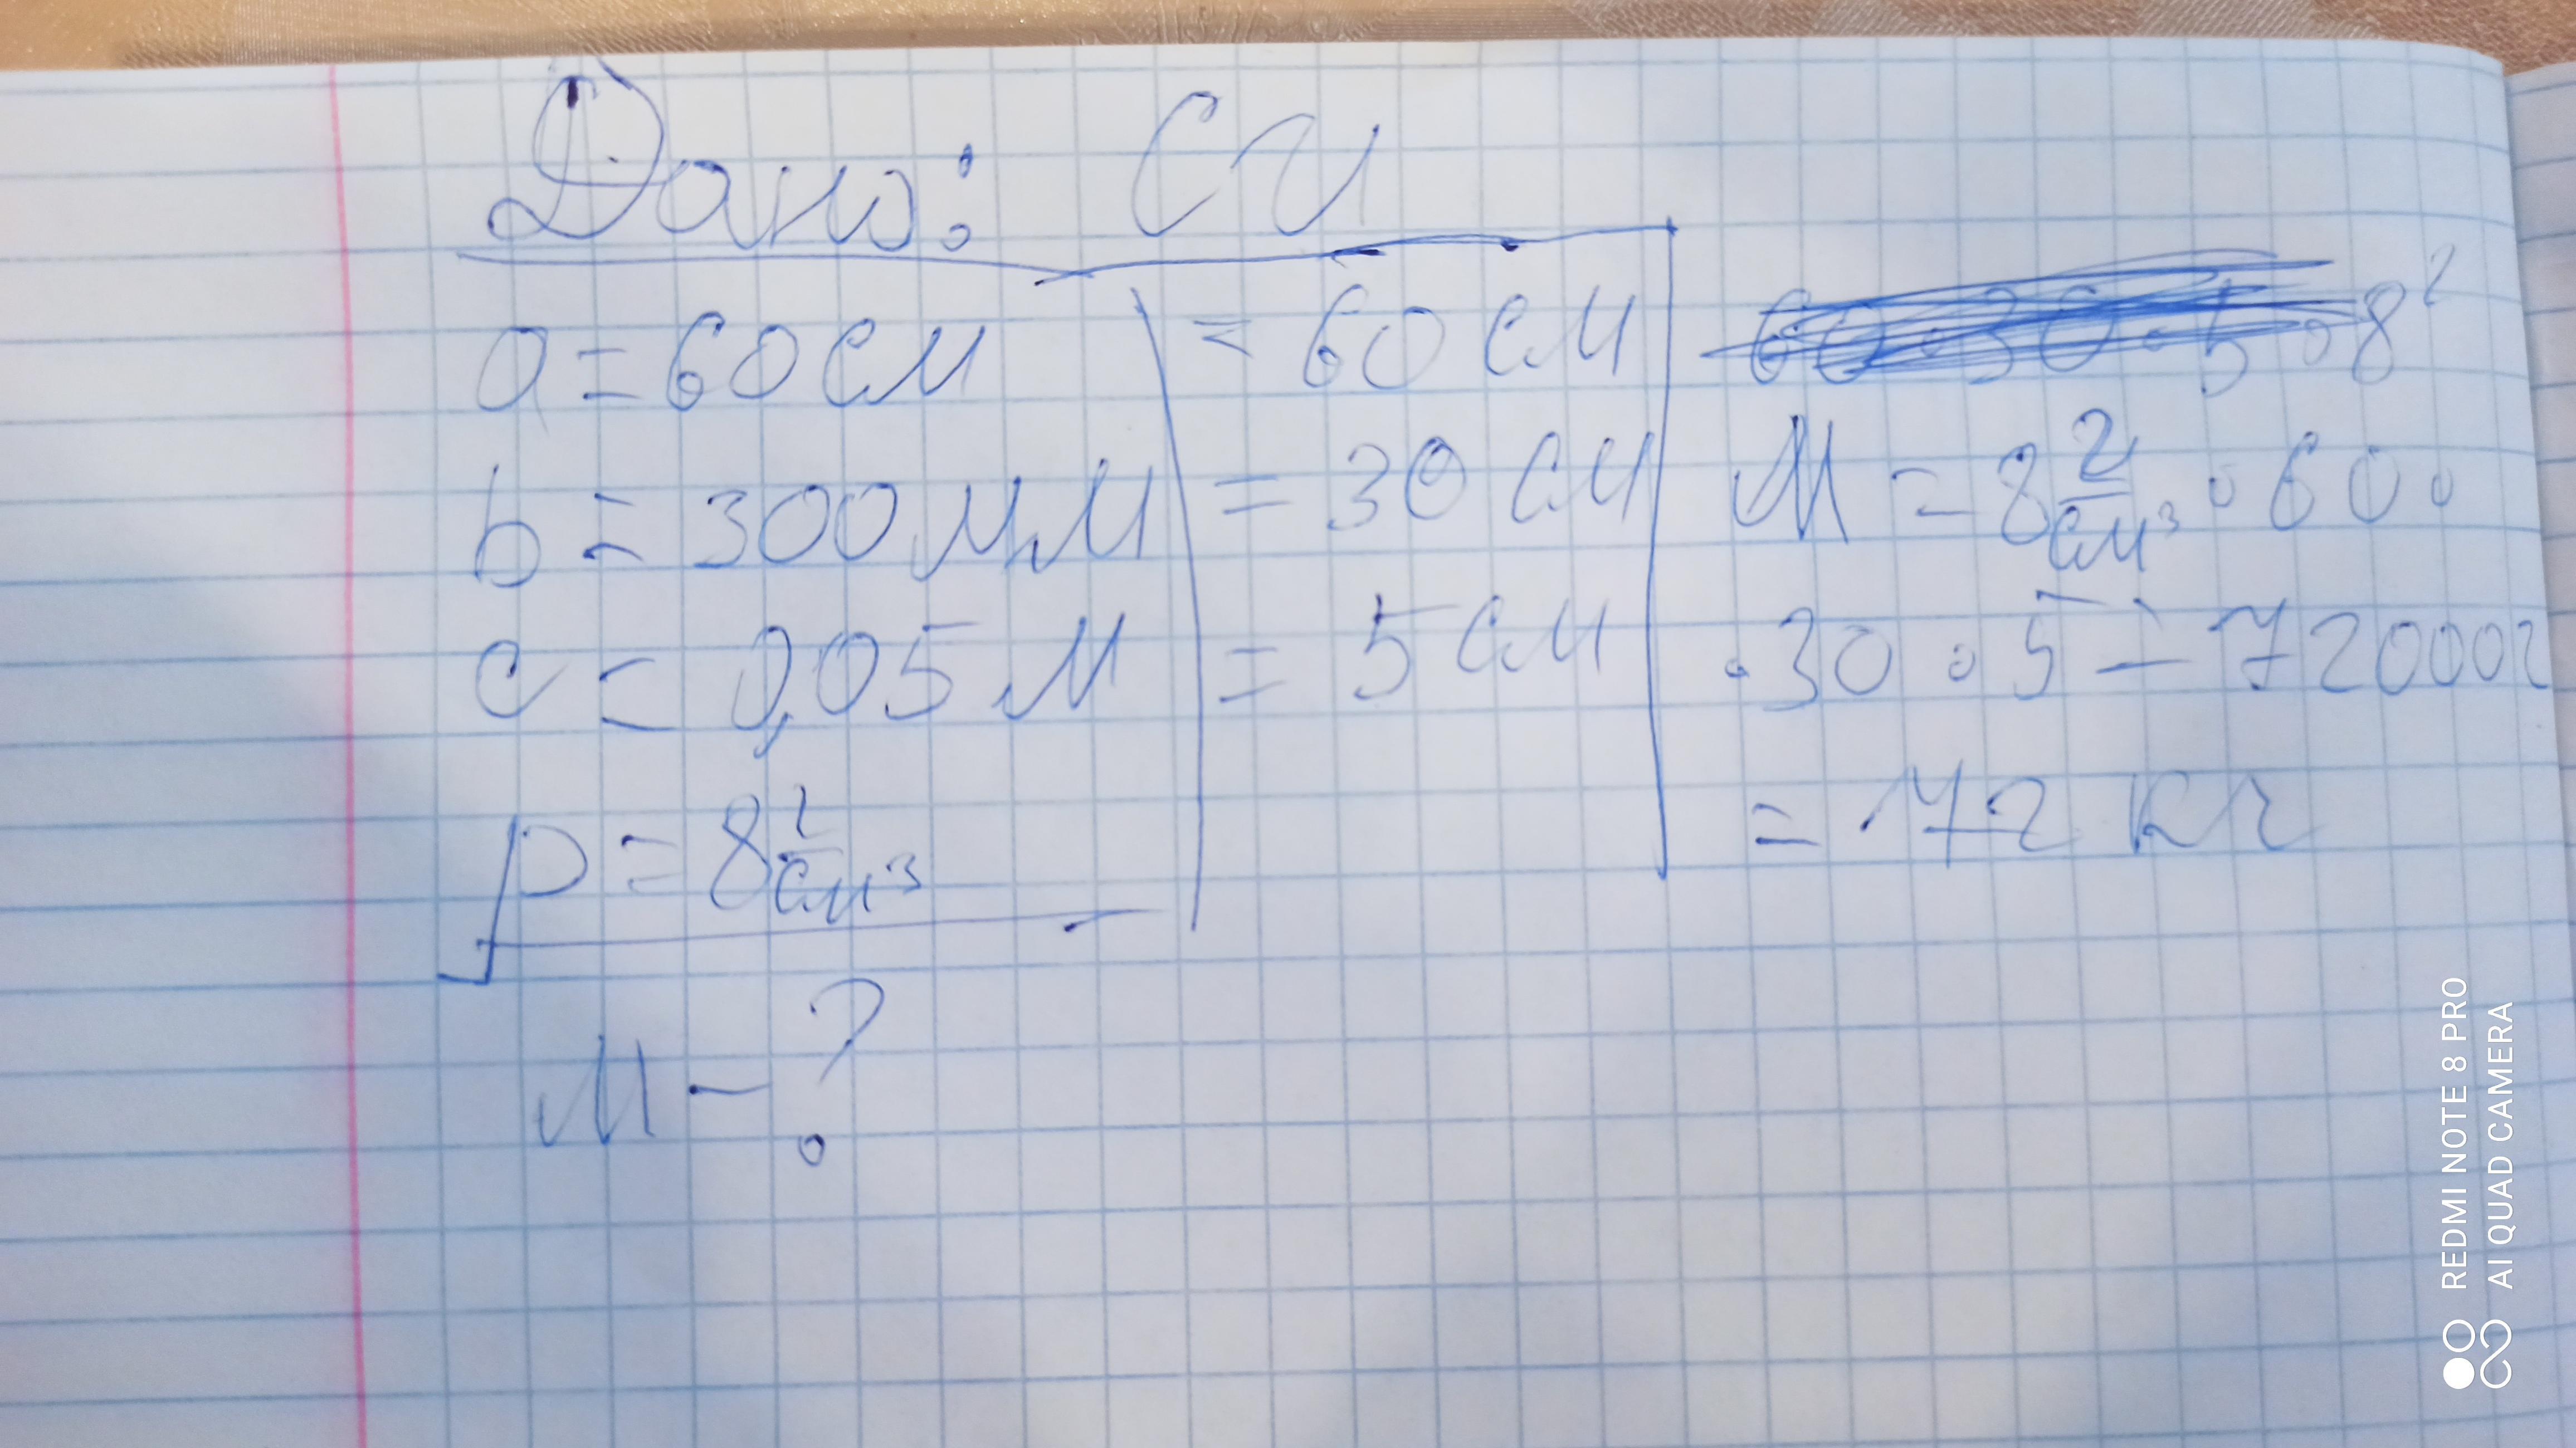 Дано: СИ
a = 60 см = 60 см
b = 300 мм = 30 см
c = 0,05 м = 5 см
ρ = 8 г/см³
м - ?
60 · 30 · 5 · 8 г
М = 8 г/см³ · 60 ·
· 30 · 5 = 72000г
= 72 кг
REDMI NOTE 8 PRO
AI QUAD CAMERA